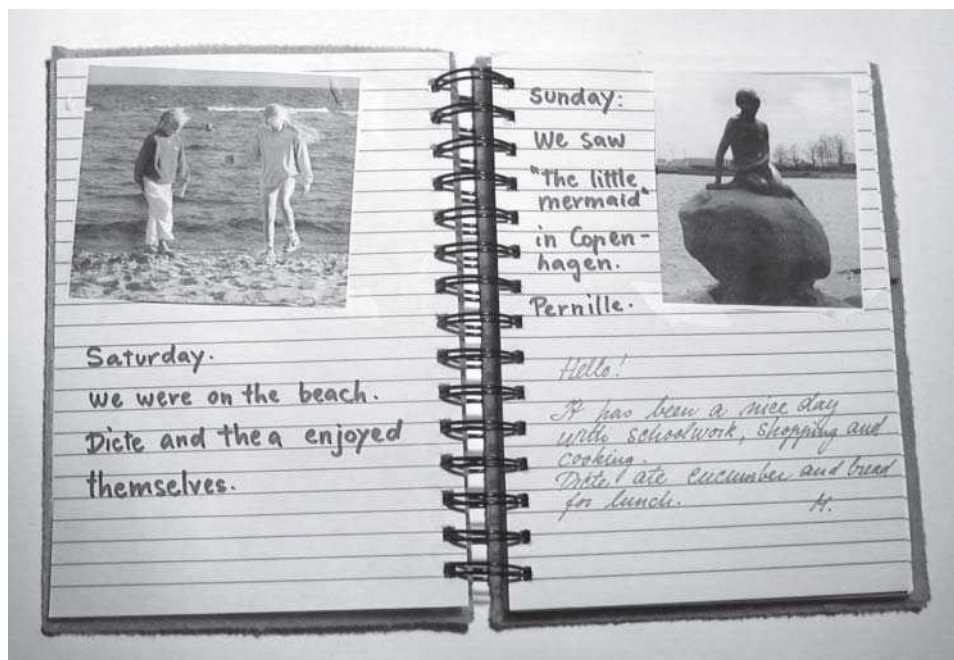 Saturday.
We were on the beach.
Dicte and thea enjoyed
themselves.
Sunday:
We saw
"the little
mermaid"
in Copen-
hagen.
Pernille.
Hello!
It has been a nice day
with schoolwork, shopping and
cooking.
Dicte ate cucumber and bread
for lunch. M.